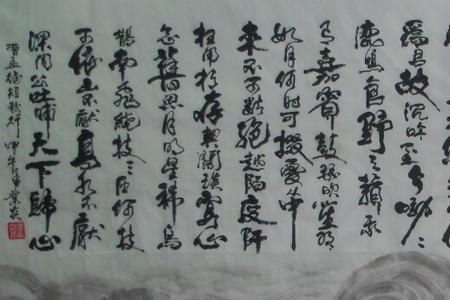 為君故沉吟至今呦々
鹿鳴食野之蘋我
有嘉賓鼓瑟吹笙明々
如月何時可掇憂從中
來不可斷絕越陌度阡
枉用相存契闊談宴心
念舊恩月明星稀烏
鵲南飛繞樹三匝何枝
可依山不厭高水不厭
深周公吐哺天下歸心
曹孟德短歌行 甲午年